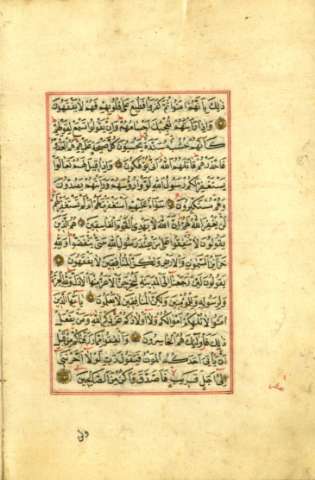 ذلك بانهم امنوا ثم كفروا فطبع على قلوبهم فهم لا يفقهون
واذا رايتهم تعجبك اجسامهم وان يقولوا تسمع لقولهم
كانهم خشب مسندة يحسبون كل صيحة عليهم هم العدو
فاحذرهم قاتلهم الله انى يؤفكون واذا قيل لهم تعالوا
يستغفر لكم رسول الله لووا رؤسهم ورايتهم يصدون
وهم مستكبرون سواء عليهم استغفرت لهم ام لم تستغفر لهم
لن يغفر الله لهم ان الله لا يهدي القوم الفاسقين هم الذين
يقولون لا تنفقوا على من عند رسول الله حتى ينفضوا ولله
خزائن السموات والارض ولكن المنافقين لا يفقهون
يقولون لئن رجعنا الى المدينة ليخرجن الاعز منها الاذل ولله العزة
ولرسوله وللمؤمنين ولكن المنافقين لا يعلمون يا ايها الذين
امنوا لا تلهكم اموالكم ولا اولادكم عن ذكر الله ومن يفعل
ذلك فاولئك هم الخاسرون وانفقوا مما رزقناكم من قبل
ان ياتي احدكم الموت فيقول رب لولا اخرتني
الى اجل قريب فاصدق واكن من الصالحين
ولن